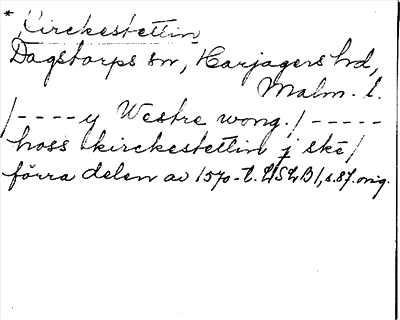 * Kirckestettin
Dagstorps sn, Harjagers hd,
Malm. l.
/----y Westre wong. / -----
hoss kirckestettin j ske /
förra delen av 1570-t. LSLB 1, s. 87. orig.